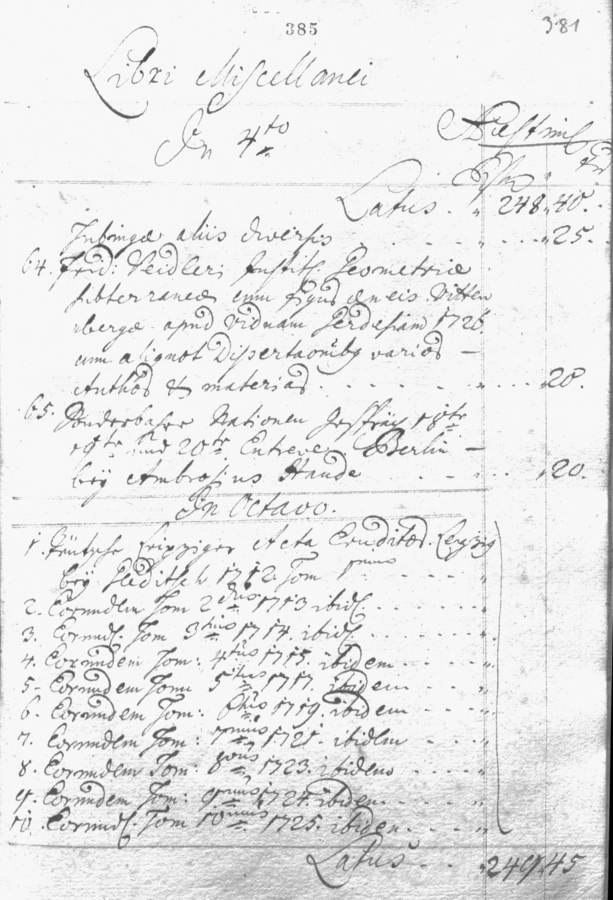 385
381
Libri Miscellanei
In 4to
Aestim
Latus . „ 248 „ 40.
Tubingae aliis diversis . . . . „ 25.
64. Frid: Veidleri Instit: Geometriae
subterraneae cum figuris aeneis Vitten
bergae apud Viduam Gerdesiam 1726.
cum aliquot Dissertaōnibq varios —
Authos & materias . . . . „ . . . „ 20.
65. Sonderbahre Nationen Gespräch 18te
19te und 20te Entrevue Berlin —
bey Ambrosius Haude . . „ . . . „ 20.
In Octavo.
1. Teutsche Leipziger Acta Eruditor. Leipzig
bey Gleditsch 1712. Tom primus . . . . „
2. Eorundem Tom 2dus 1713 ibid. . . . . „
3. Eorund. Tom 3tius 1714. ibid. . . . . „
4. Eorundem Tom: 4tus 1715. ibidem . . . „
5. Eorundem Tom 5tus 1717. ibidem . . . . „
6. Eorundem Tom: 6tus 1719. ibidem . . . „
7. Eorundem Tom: 7mus 1721. ibidem . . . „
8. Eorundem Tom: 8vus 1723. ibidem . . . „
9. Eorundem Tom: 9nus 1724. ibidem . . . „
10. Eorund. Tom 10mus 1725. ibidem . . . „
Latus . . „ 249 „ 45